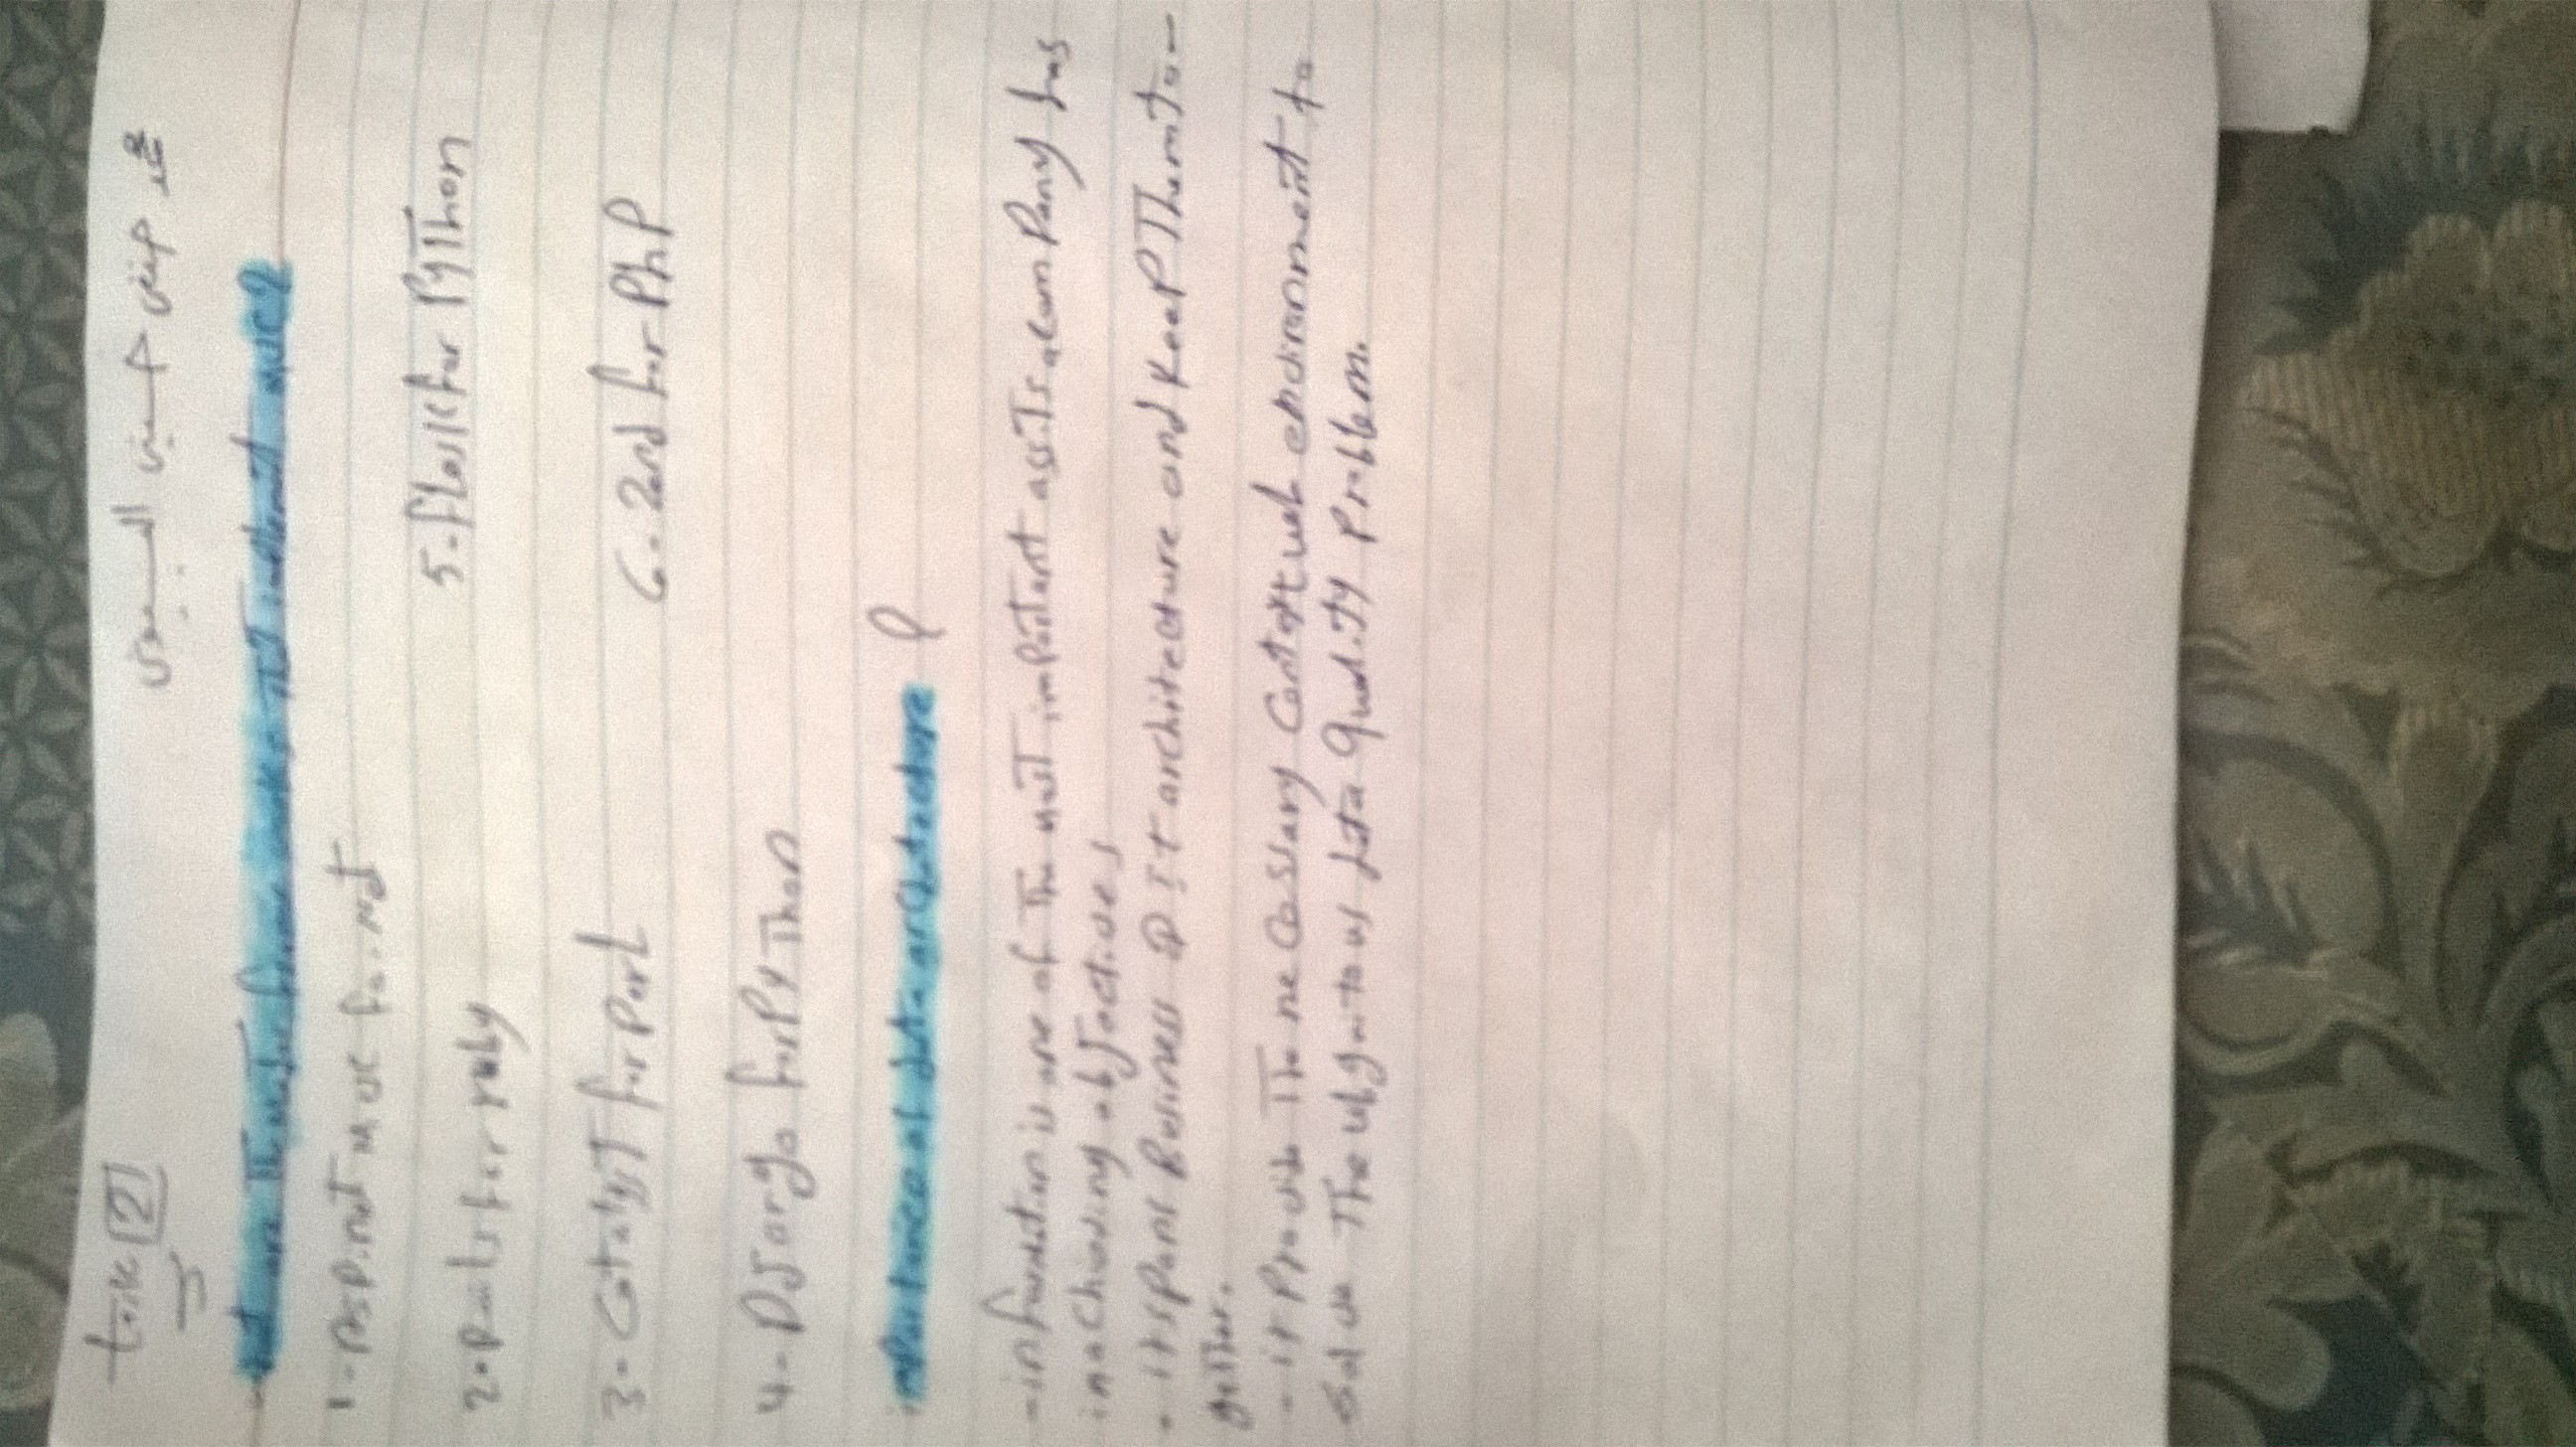 task [2]
محمد حنفى حسينى البسيونى
are The major frame works That implement MVC?
1- Asp.net MVC for .net
2- Rails for ruby
3- Catalyst for Perl
4- Django for PyThon
5- flask for PyThon
6- Zend for PhP
importance of data architecture ?
- information is one of The most important assets a company has
in achieving objectives
- it span Business & It architecture and keep Them to-
gether.
- it Provide The necessary Contextual environment to
solve The data quality Problem.